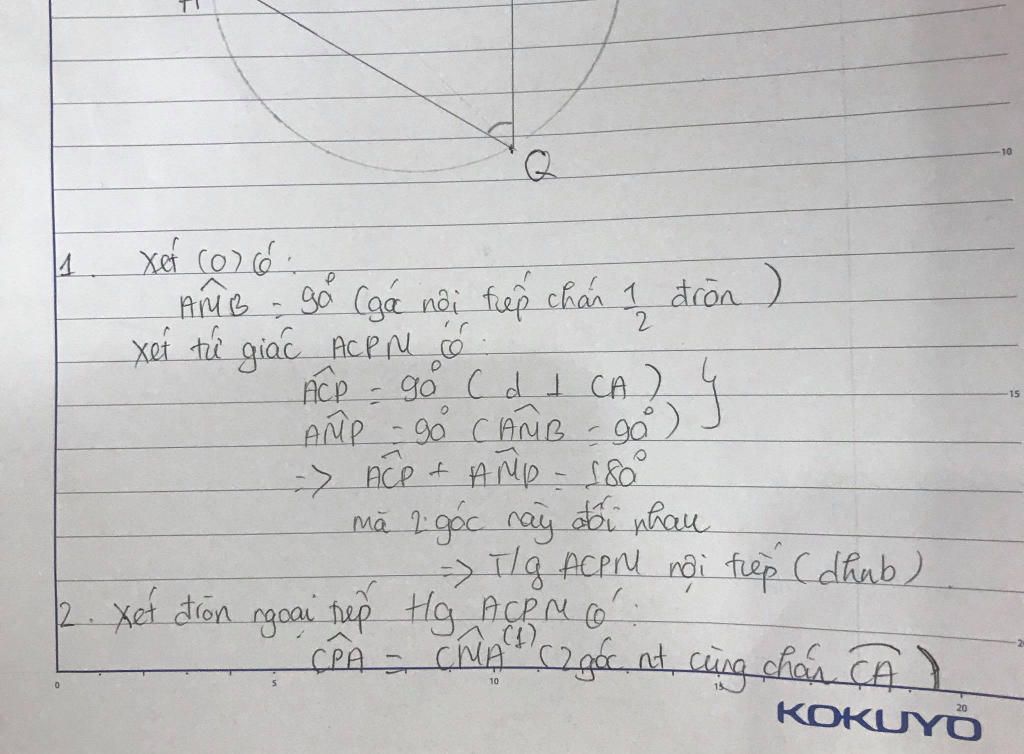 Q
10
1. Xét (O) có:
AM̂B = 90° (góc nội tiếp chắn 1/2 đtròn)
Xét tứ giác ACPM có:
AĈP = 90° (d ⊥ CA) }
AM̂P = 90° (AM̂B = 90°)
15
=> AĈP + AM̂P = 180°
mà 2 góc này đối nhau
=> T/g ACPM nội tiếp (dhnb)
2. Xét đtròn ngoại tiếp t/g ACPM có:
CP̂A = CM̂A (1) (2 góc nt cùng chắn CA)
0 5 10 15 20
KOKUYO